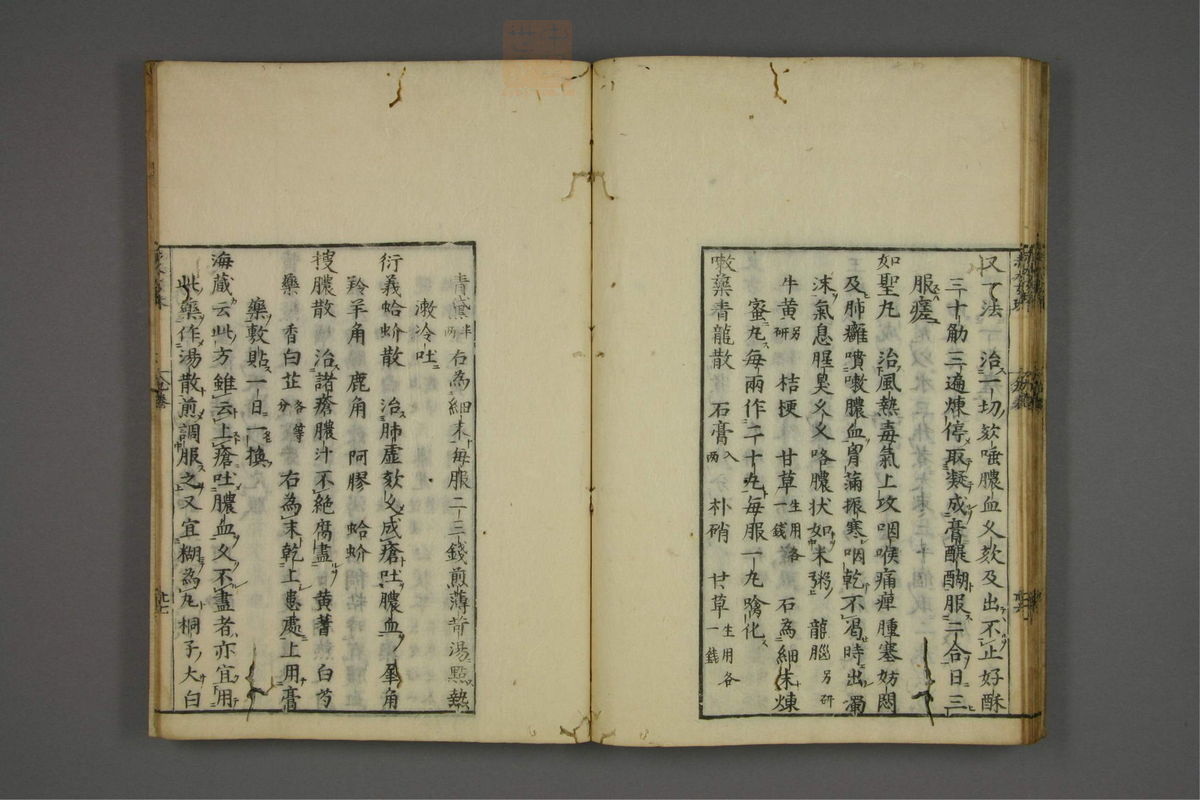 又一法 治一切欬唾膿血久欬及出不止好酥
三十觔三遍煉停取凝成膏醍醐服二合日三
服瘥
如聖丸 治風熱毒氣上攻咽喉痛痺腫塞妨悶
及肺癰嘳嗽膿血胷滿振寒咽乾不渴時出濁
沫氣息腥臭久久咯膿状如米粥 龍腦另研
牛黄另研 桔梗 甘草生用各一錢 右為細末煉
蜜丸每兩作二十丸每服一丸噙化
嗽藥青龍散 石膏八兩 朴硝 甘草生用各一錢
青黛半兩 右為細末每服二三錢煎薄荷湯點熱
漱冷吐
衍義蛤蚧散 治肺虚欬久成瘡吐膿血 犀角
羚羊角 鹿角 阿膠 蛤蚧
搜膿散 治諸瘡膿汁不絶腐盡 黄蓍 白芍
藥 香白芷各等分 右為末乾上患處上用膏
藥敷貼一日一換
海藏云此方雖云上瘡吐膿血久不盡者亦宜用
此藥作湯散煎調服之又宜糊為丸桐子大白